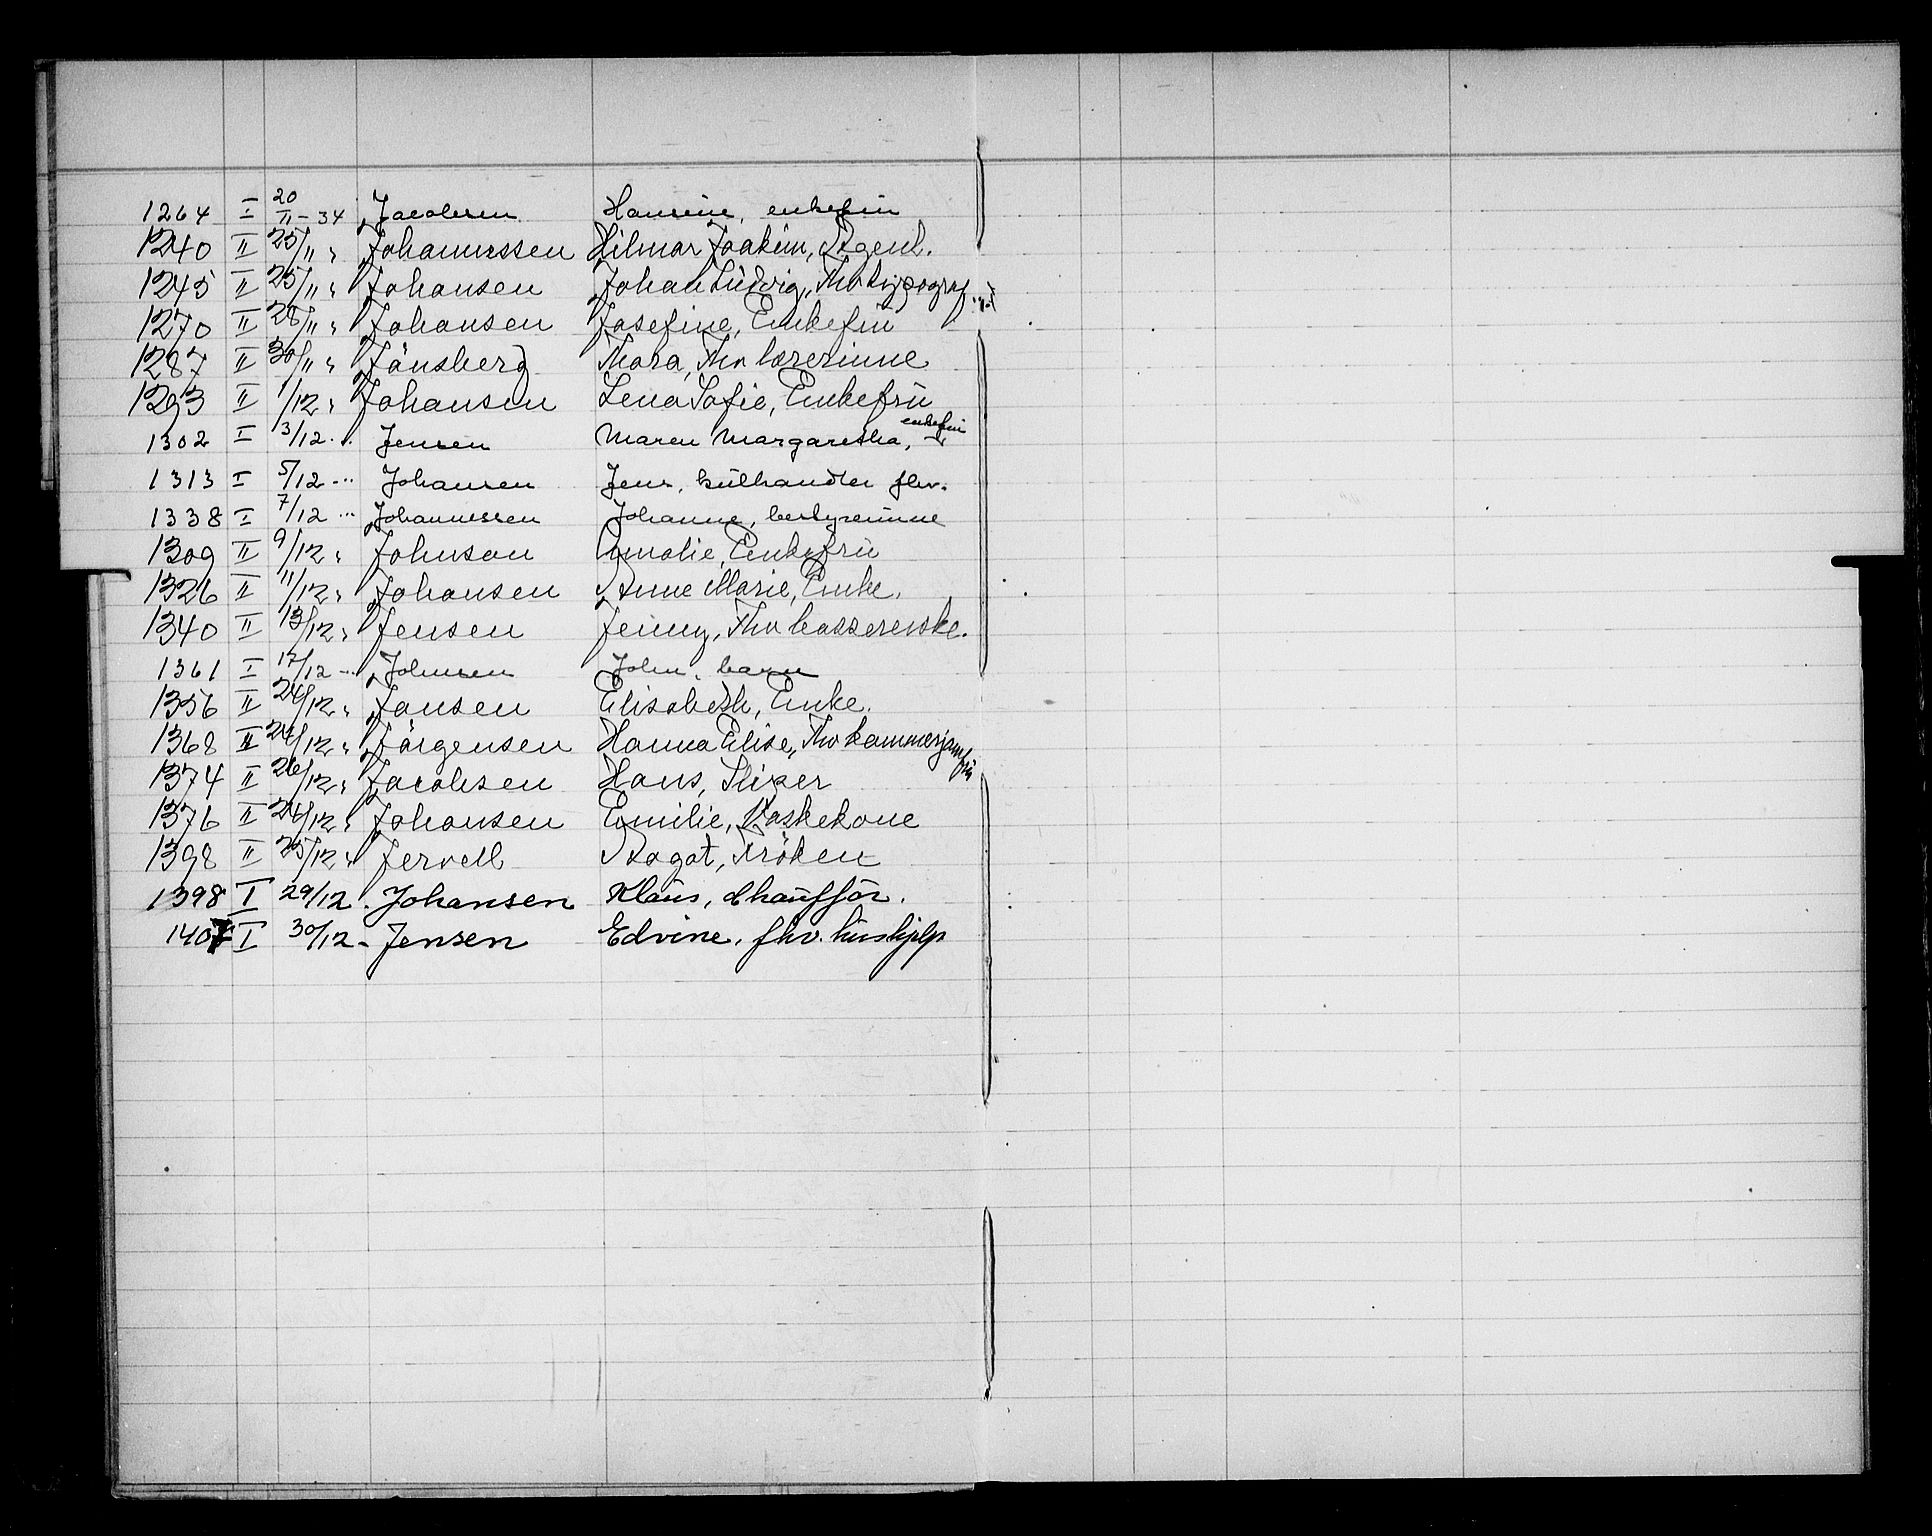 1264 I 20/11-34 Jacobsen Hansine, enkefru
1240 II 25/11 " Johannessen Hilmar Joakim, Agent.
1245 II 25/11 " Johansen Johan Ludvig, Fhv typograf
1270 II 28/11 " Johansen Josefine, Enkefru
1287 II 30/11 " Jönsberg Thora, Fhv lærerinne
1293 II 1/12 " Johansen Lena Sofie, Enkefru
1302 I 3/12 - " Jensen Maren Margaretha, enkefru
1313 I 5/12 - " Johansen Jens, kulhandler fhv.
1338 I 7/12 " Johannessen Johanne, bestyrerinne
1309 II 9/12 " Johnson Amalie, Enkefru
1326 II 11/12 " Johansen Anne Marie, Enke.
1340 II 13/12 " Jensen Jenny, Fhv kassererske.
1361 I 17/12 - " Johnsen John, barn
1356 II 24/12 " Jansen Elisabeth, Enke.
1368 II 24/12 " Jörgensen Hanna Elise, Fhv kammerjomfru
1374 II 26/12 " Jacobsen Hans, Sliper
1376 II 26/12 " Johansen Emilie, Vaskekone
1398 II 25/12 " Jervell Aagot, Fröken
1398 I 29/12 . Johansen Klaus, chaufför.
1407 I 30/12 - Jensen Edvine, fhv. hushjelp